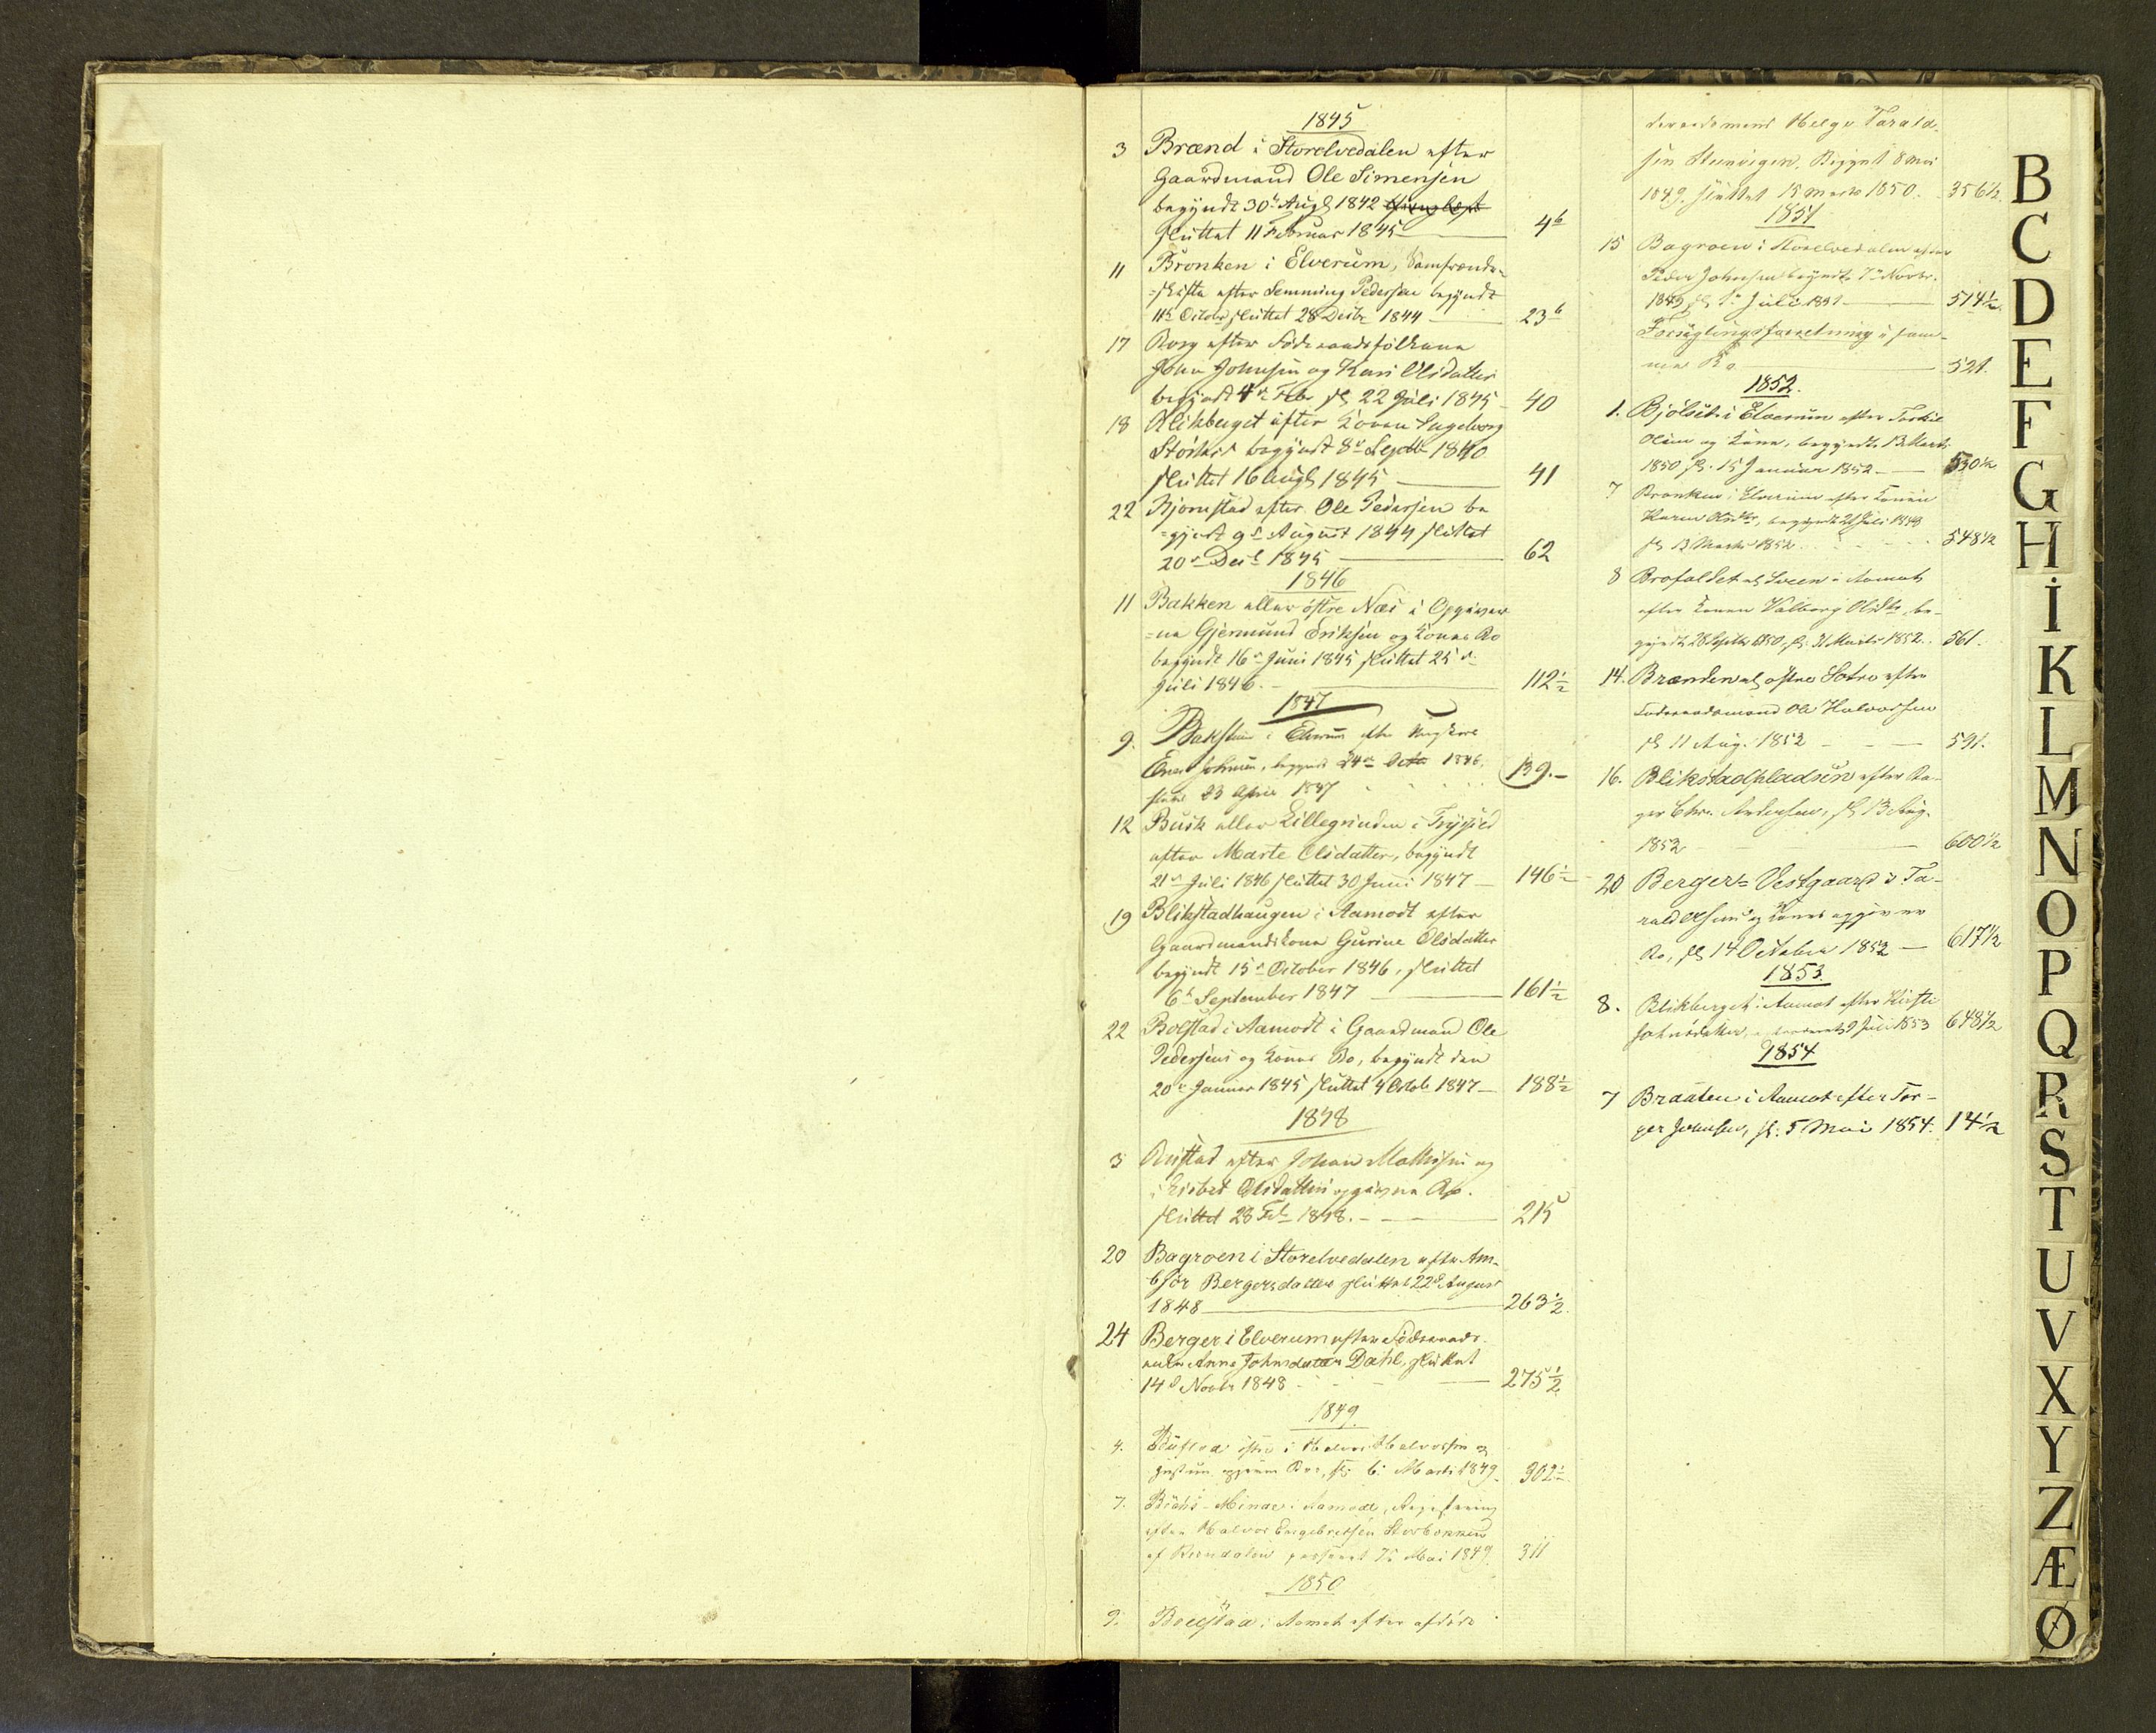 1845
3 Brænd i Storelvedalen efter
Gaardmand Ole Simensen
begyndt 30 Augs 1842
sluttet 11 Februar 1845 4 b
11 Bronken i Elverum, Samfrænde-
=skifte efter Semming Pedersen begyndt
11te Octobr sluttet 28 Decbr 1844 23 b
17 efter Føderaadsfolkene
John Johnsen og Kari Olsdatter
begyndt 4de Febr sl 22 Juli 1845 40
18 Blikberget efter Konen Ingeborg
begyndt 8de Septbr 1840
sluttet 16 Augs 1845 41
22 Bjørnstad efter Ole Pedersen be
=gyndt 9de August 1844 sluttet
20de Decbr 1845 62
1846
11 Bakken eller østre Næs i Opgiver
=ne Gjermund Eriksen og Kones Bo
begyndt 16de Juni 1845 sluttet 25de
Juli 1846. 112½
1847
9. i Elverum efter
Johnsen, begyndt 24de Octbr 1846,
23 April 1847 139.-
12 Busk eller Lillegrinden i Trysild
efter Marte Olsdatter, begyndt
21de Juli 1846 sluttet 30 Juni 1847 146½
19 Blikstadhaugen i Aamodt efter
Gaardmandskone Gurine Olsdatter
begyndt 15de October 1846, sluttet
6te September 1847 161½
22 Bolstad i Aamodt i Gaardmand Ole
Pedersens og Kones Bo, begyndt den
20de Januar 1845 sluttet 4 Octob 1847 188½
1848
3 efter Johan Mathisen og
Olsdatters opgivne Bo.
sluttet 28 Feb 1848. 215
20 Bagroen i Storelvedalen efter Am-
bjør Bergersdatter sluttet 22de August
1848 263½.
24 Berger i Elverum efter Føderaads-
enke Anne Johnsdatter Dahl, sluttet
14de Novbr 1848 275½
1849
4. østre i Halvor Halvorsen og
Bo, sl: 6: Marts 1849. 302½
7. i Aamodt, Registrering
efter Halvor Engebretsen Storbekken
af Rendalen 7de Mai 1849. 311
1850
9. i Aamot efter afdøde
deraadsmand Helge Tarald-
sen Steenvigen, Begyndt 8 Mai
1849. sluttet 15 Marts 1850. 356½
1851
15 Bagroen i Storelvedalen efter
Peder Johnsen begyndt 7de Novbr.
1849 sl 1ste Juli 1851 514½.
Forseglingsforretning i sam-
me Bo 521.
1852.
1. Bjølset i Elverum efter Terkil
Olsen og Kone, begyndt 13 Marts
1850 sl. 15 Januar 1852 530½
7 Bronken i Elverum efter Konen
Karen Olsdtr, begyndt 21 Juli
sl 13 Marts 1852 548½
8 Brofaldet el Sveen i Aamot
efter Konen Valborg Olsdtr, be-
gyndt 28 Septbr 1850, sl: 31 Marts 1852. 561.
14. Brænden el østre Sætre efter
Føderaadsmand Ole Halvorsen
sl 11 Aug. 1852 591.
16. Blikstadpladsen efter Bær-
ger Chr. Andersen, sl 13 Aug.
1852 600½
20 Berger= Vestgaard i Ta-
rald Olsens og Kones opgivne
Bo, sl 14 October 1852 617½
1853
8. Blikberget i Aamot efter Kirsti
Johnsdatter, 9 Juli 1853 648½
1854
7 Braaten i Aamot efter Tor-
ger Johnsen, sl: 5 Mai 1854. 14½
B
C
D
E
F
G
H
I
K
L
M
N
O
P
Q
R
S
T
U
V
X
Y
Z
Æ
Ø